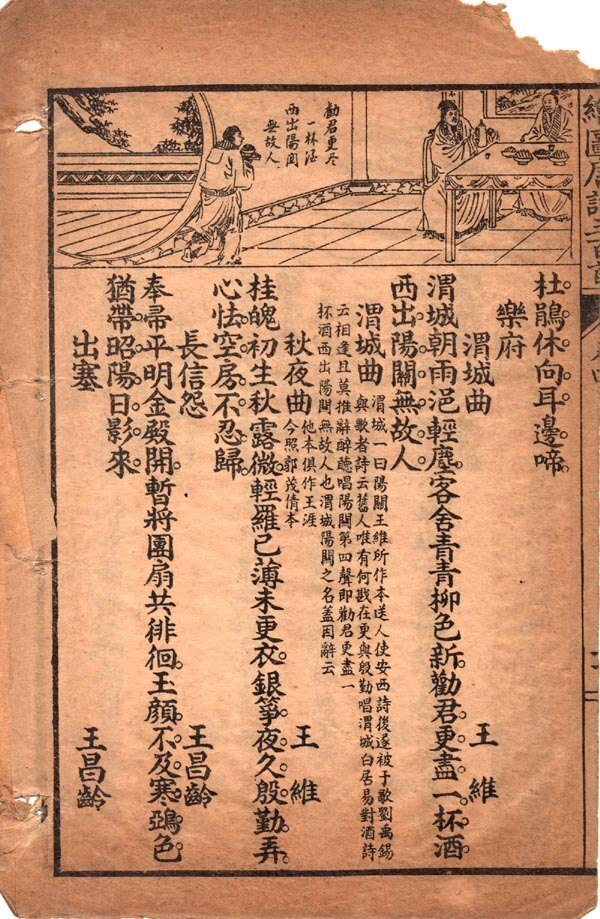 繪圖唐詩三百首
勸君更尽
一杯酒
西出陽関
無故人
杜鵑休向耳邊啼。
樂府
渭城曲 王維
渭城朝雨浥輕塵。客舍青青柳色新。勸君更盡一杯酒。
西出陽關無故人。
渭城曲 渭城一曰陽關王維所作本送人使安西詩後遂被于歌劉禹錫
與歌者詩云舊人唯有何戡在更與殷勤唱渭城白居易對酒詩
云相逢且莫推辭醉聽唱陽關第四聲即勸君更盡一
杯酒西出陽關無故人也渭城陽關之名蓋因辭云
秋夜曲 他本俱作王涯
今照郭茂倩本 王維
桂魄初生秋露微。輕羅已薄未更衣。銀箏夜久殷勤弄。
心怯空房不忍歸。
長信怨 王昌齡
奉帚平明金殿開。暫將團扇共徘徊。玉顏不及寒鴉色。
猶帶昭陽日影來。
出塞 王昌齡